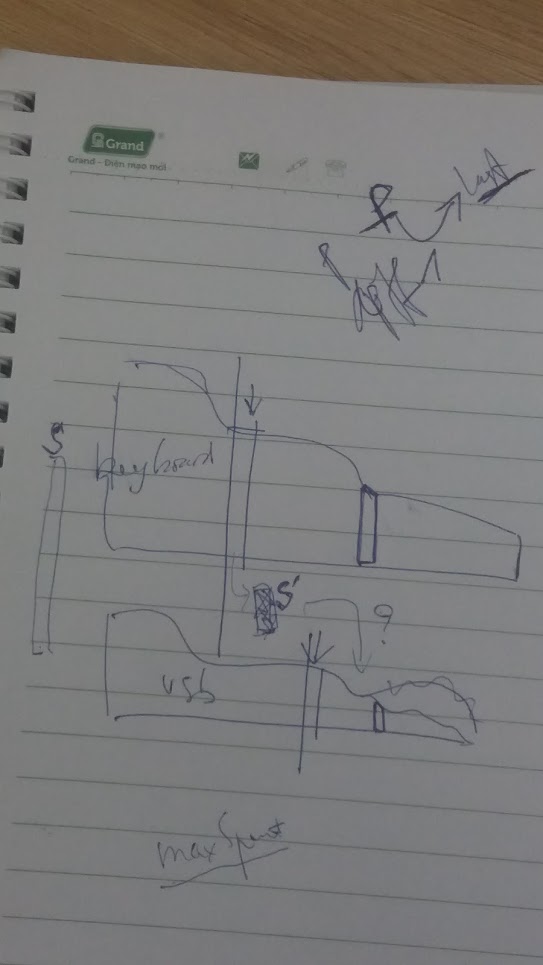 Grand
Grand - Diện mạo mới
Last
S
keyboard
S'
?
usb
max Spent